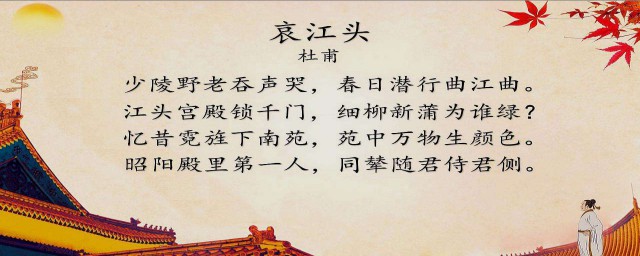 哀江头
杜甫
少陵野老吞声哭，春日潜行曲江曲。
江头宫殿锁千门，细柳新蒲为谁绿？
忆昔霓旌下南苑，苑中万物生颜色。
昭阳殿里第一人，同辇随君侍君侧。